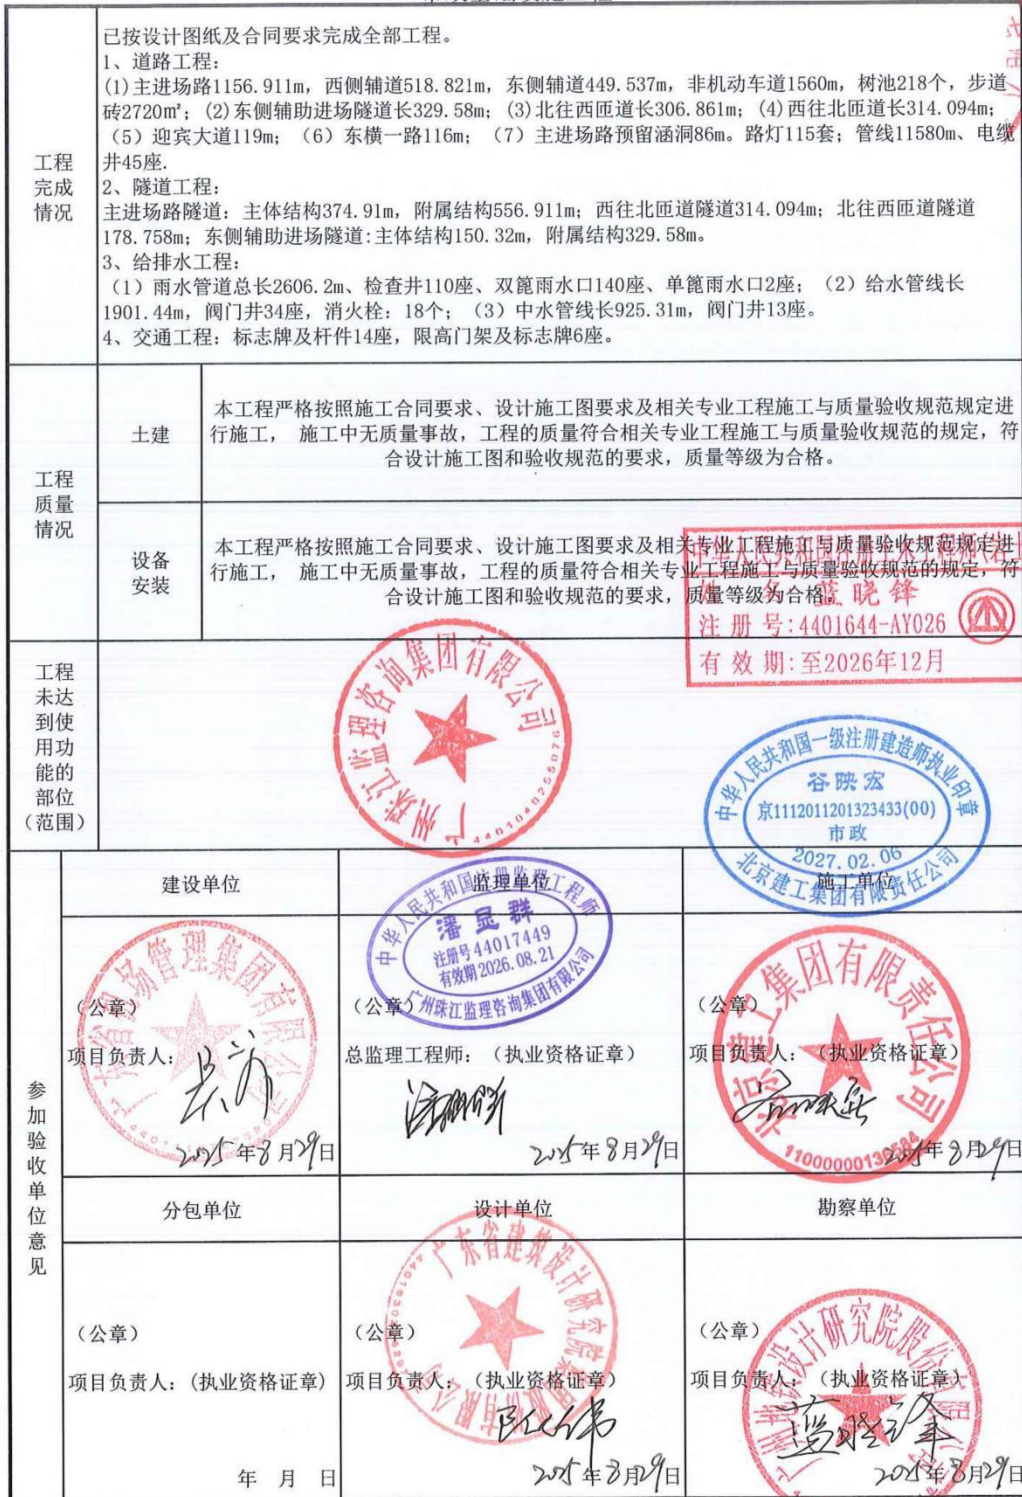 已按设计图纸及合同要求完成全部工程。
1、道路工程：
(1)主进场路1156.911m，西侧辅道518.821m，东侧辅道449.537m，非机动车道1560m，树池218个，步道
砖2720m²；(2)东侧辅助进场隧道长329.58m；(3)北往西匝道长306.861m；(4)西往北匝道长314.094m；
（5）迎宾大道119m；（6）东横一路116m；（7）主进场路预留涵洞86m。路灯115套；管线11580m、电缆
井45座.
2、隧道工程：
主进场路隧道：主体结构374.91m，附属结构556.911m；西往北匝道隧道314.094m；北往西匝道隧道
178.758m；东侧辅助进场隧道:主体结构150.32m，附属结构329.58m。
3、给排水工程：
（1）雨水管道总长2606.2m、检查井110座、双篦雨水口140座、单篦雨水口2座；（2）给水管线长
1901.44m，阀门井34座，消火栓：18个；（3）中水管线长925.31m，阀门井13座。
4、交通工程：标志牌及杆件14座，限高门架及标志牌6座。
工程
完成
情况
工程
质量
情况
土建
本工程严格按照施工合同要求、设计施工图要求及相关专业工程施工与质量验收规范规定进
行施工， 施工中无质量事故，工程的质量符合相关专业工程施工与质量验收规范的规定，符
合设计施工图和验收规范的要求，质量等级为合格。
设备
安装
本工程严格按照施工合同要求、设计施工图要求及相关专业工程施工与质量验收规范规定进
行施工， 施工中无质量事故，工程的质量符合相关专业工程施工与质量验收规范的规定，符
合设计施工图和验收规范的要求，质量等级为合格。
姓 名 蓝晓锋
注册号:4401644-AY026
有效期:至2026年12月
工程
未达
到使
用功
能的
部位
（范围）
广州珠江监理咨询集团有限公司
4401040255076
中华人民共和国一级注册建造师执业印章
谷映宏
京1112011201323433(00)
市政
2027.02.06
北京建工集团有限责任公司
参加验收单位意见
建设单位
监理单位
施工单位
中华人民共和国注册监理工程师
潘显群
注册号44017449
有效期2026.08.21
广州珠江监理咨询集团有限公司
广东省机场管理集团有限公司
北京建工集团有限责任公司
（公章）
（公章）
（公章）
项目负责人：
总监理工程师：（执业资格证章）
项目负责人：（执业资格证章）
2025年8月29日
2025年8月29日
2025年8月29日
分包单位
设计单位
勘察单位
广东省建筑设计研究院集团股份有限公司
广州地铁设计研究院股份有限公司
（公章）
（公章）
（公章）
项目负责人：(执业资格证章)
项目负责人：（执业资格证章）
项目负责人：（执业资格证章）
蓝晓锋
年 月 日
2025年8月29日
2025年8月29日